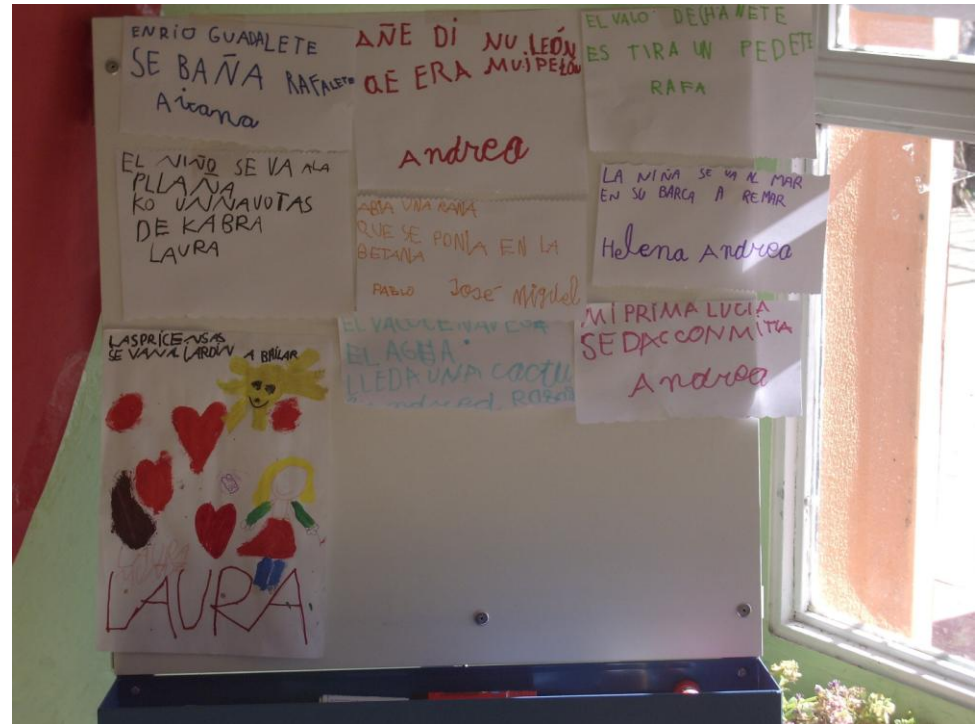 EN RIO GUADALETE
SE BAÑA RAFALETE
Aitana
AÑE DI NU LEÓN
QE ERA MUI PELÓN
Andrea
EL VALO DE CHANETE
ES TIRA UN PEDETE
RAFA
EL NIÑO SE VA ALA
PLLANA
KO UNNAVOTAS
DE KABRA
LAURA
ABIA UNA RANA
QUE SE PONIA EN LA
BETANA
PABLO José Miguel
LA NIÑA SE VA AL MAR
EN SU BARCA A REMAR
Helena Andrea
LASPRICENSAS
SE VANA LARDIN A BAILAR
LAURA
EL AGHA
LLEDA UNA
MI PRIMA LUCIA
SEDACCONMITIA
Andrea